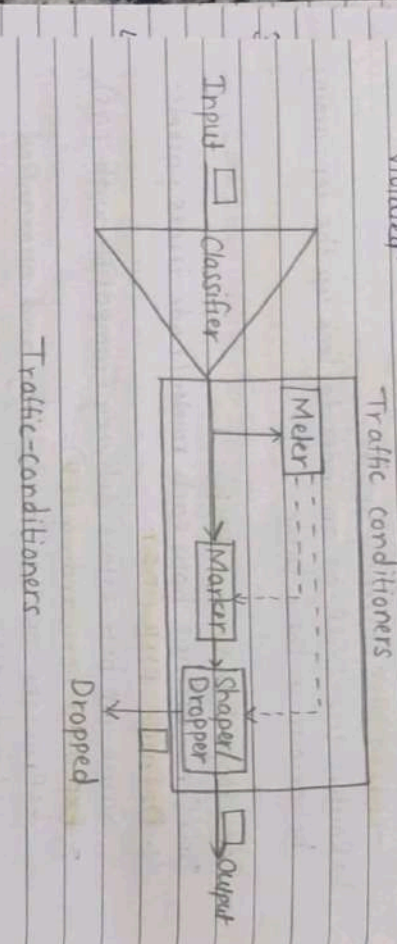 Traffic conditioners
Meter
Input
Classifier
Marker
Shaper/
Dropper
Output
Dropped
Traffic-conditioners